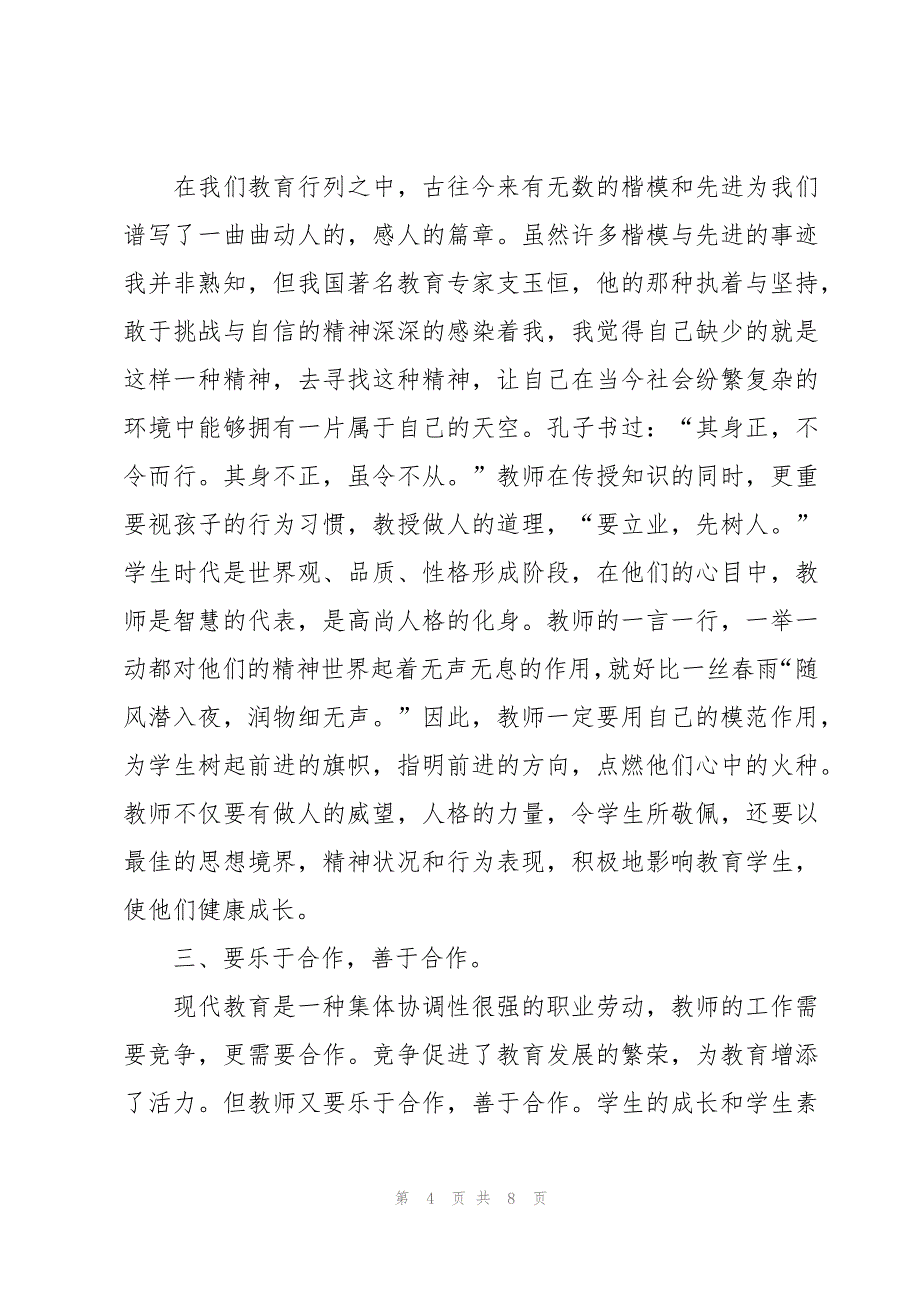 在我们教育行列之中，古往今来有无数的楷模和先进为我们
谱写了一曲曲动人的，感人的篇章。虽然许多楷模与先进的事迹
我并非熟知，但我国著名教育专家支玉恒，他的那种执着与坚持，
敢于挑战与自信的精神深深的感染着我，我觉得自己缺少的就是
这样一种精神，去寻找这种精神，让自己在当今社会纷繁复杂的
环境中能够拥有一片属于自己的天空。孔子书过：“其身正，不
令而行。其身不正，虽令不从。”教师在传授知识的同时，更重
要视孩子的行为习惯，教授做人的道理，“要立业，先树人。”
学生时代是世界观、品质、性格形成阶段，在他们的心目中，教
师是智慧的代表，是高尚人格的化身。教师的一言一行，一举一
动都对他们的精神世界起着无声无息的作用，就好比一丝春雨“随
风潜入夜，润物细无声。”因此，教师一定要用自己的模范作用，
为学生树起前进的旗帜，指明前进的方向，点燃他们心中的火种。
教师不仅要有做人的威望，人格的力量，令学生所敬佩，还要以
最佳的思想境界，精神状况和行为表现，积极地影响教育学生，
使他们健康成长。
三、要乐于合作，善于合作。
现代教育是一种集体协调性很强的职业劳动，教师的工作需
要竞争，更需要合作。竞争促进了教育发展的繁荣，为教育增添
了活力。但教师又要乐于合作，善于合作。学生的成长和学生素
第 4 页 共 8 页